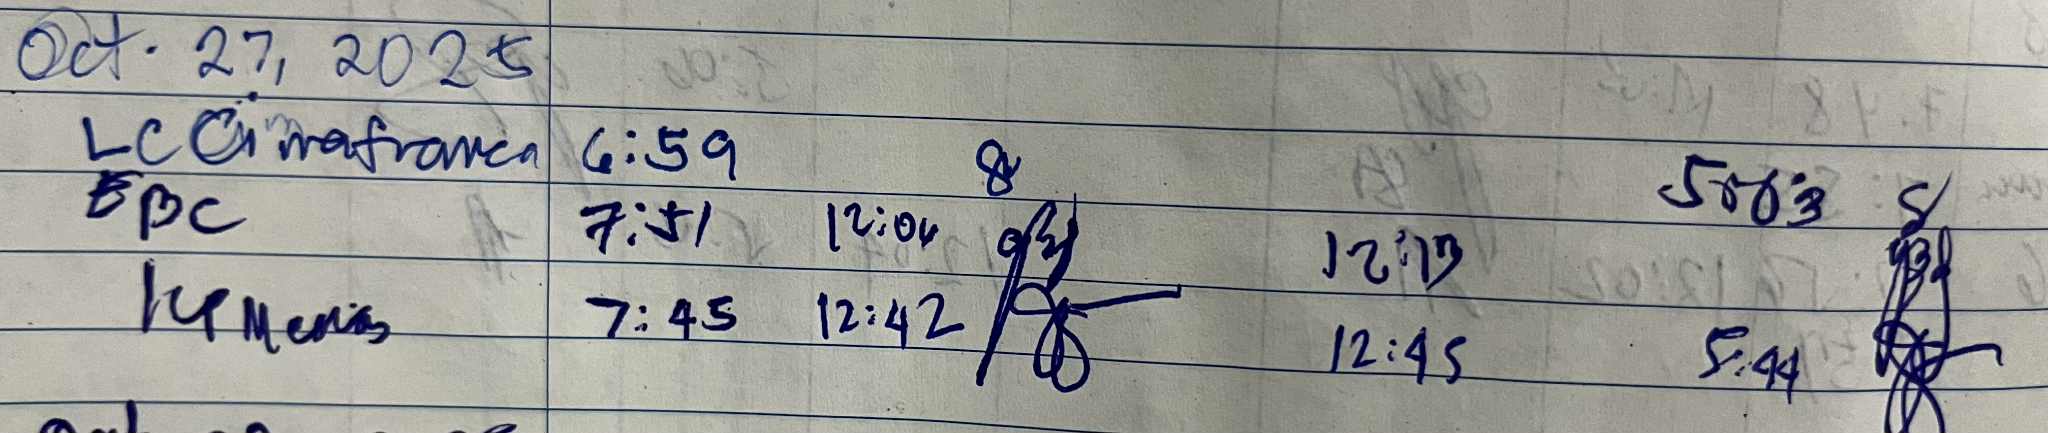 Oct. 27, 2025
LC Cimafranca 6:59 5:03
EBC 7:51 12:04 12:13
7:45 12:42 12:45 5:44